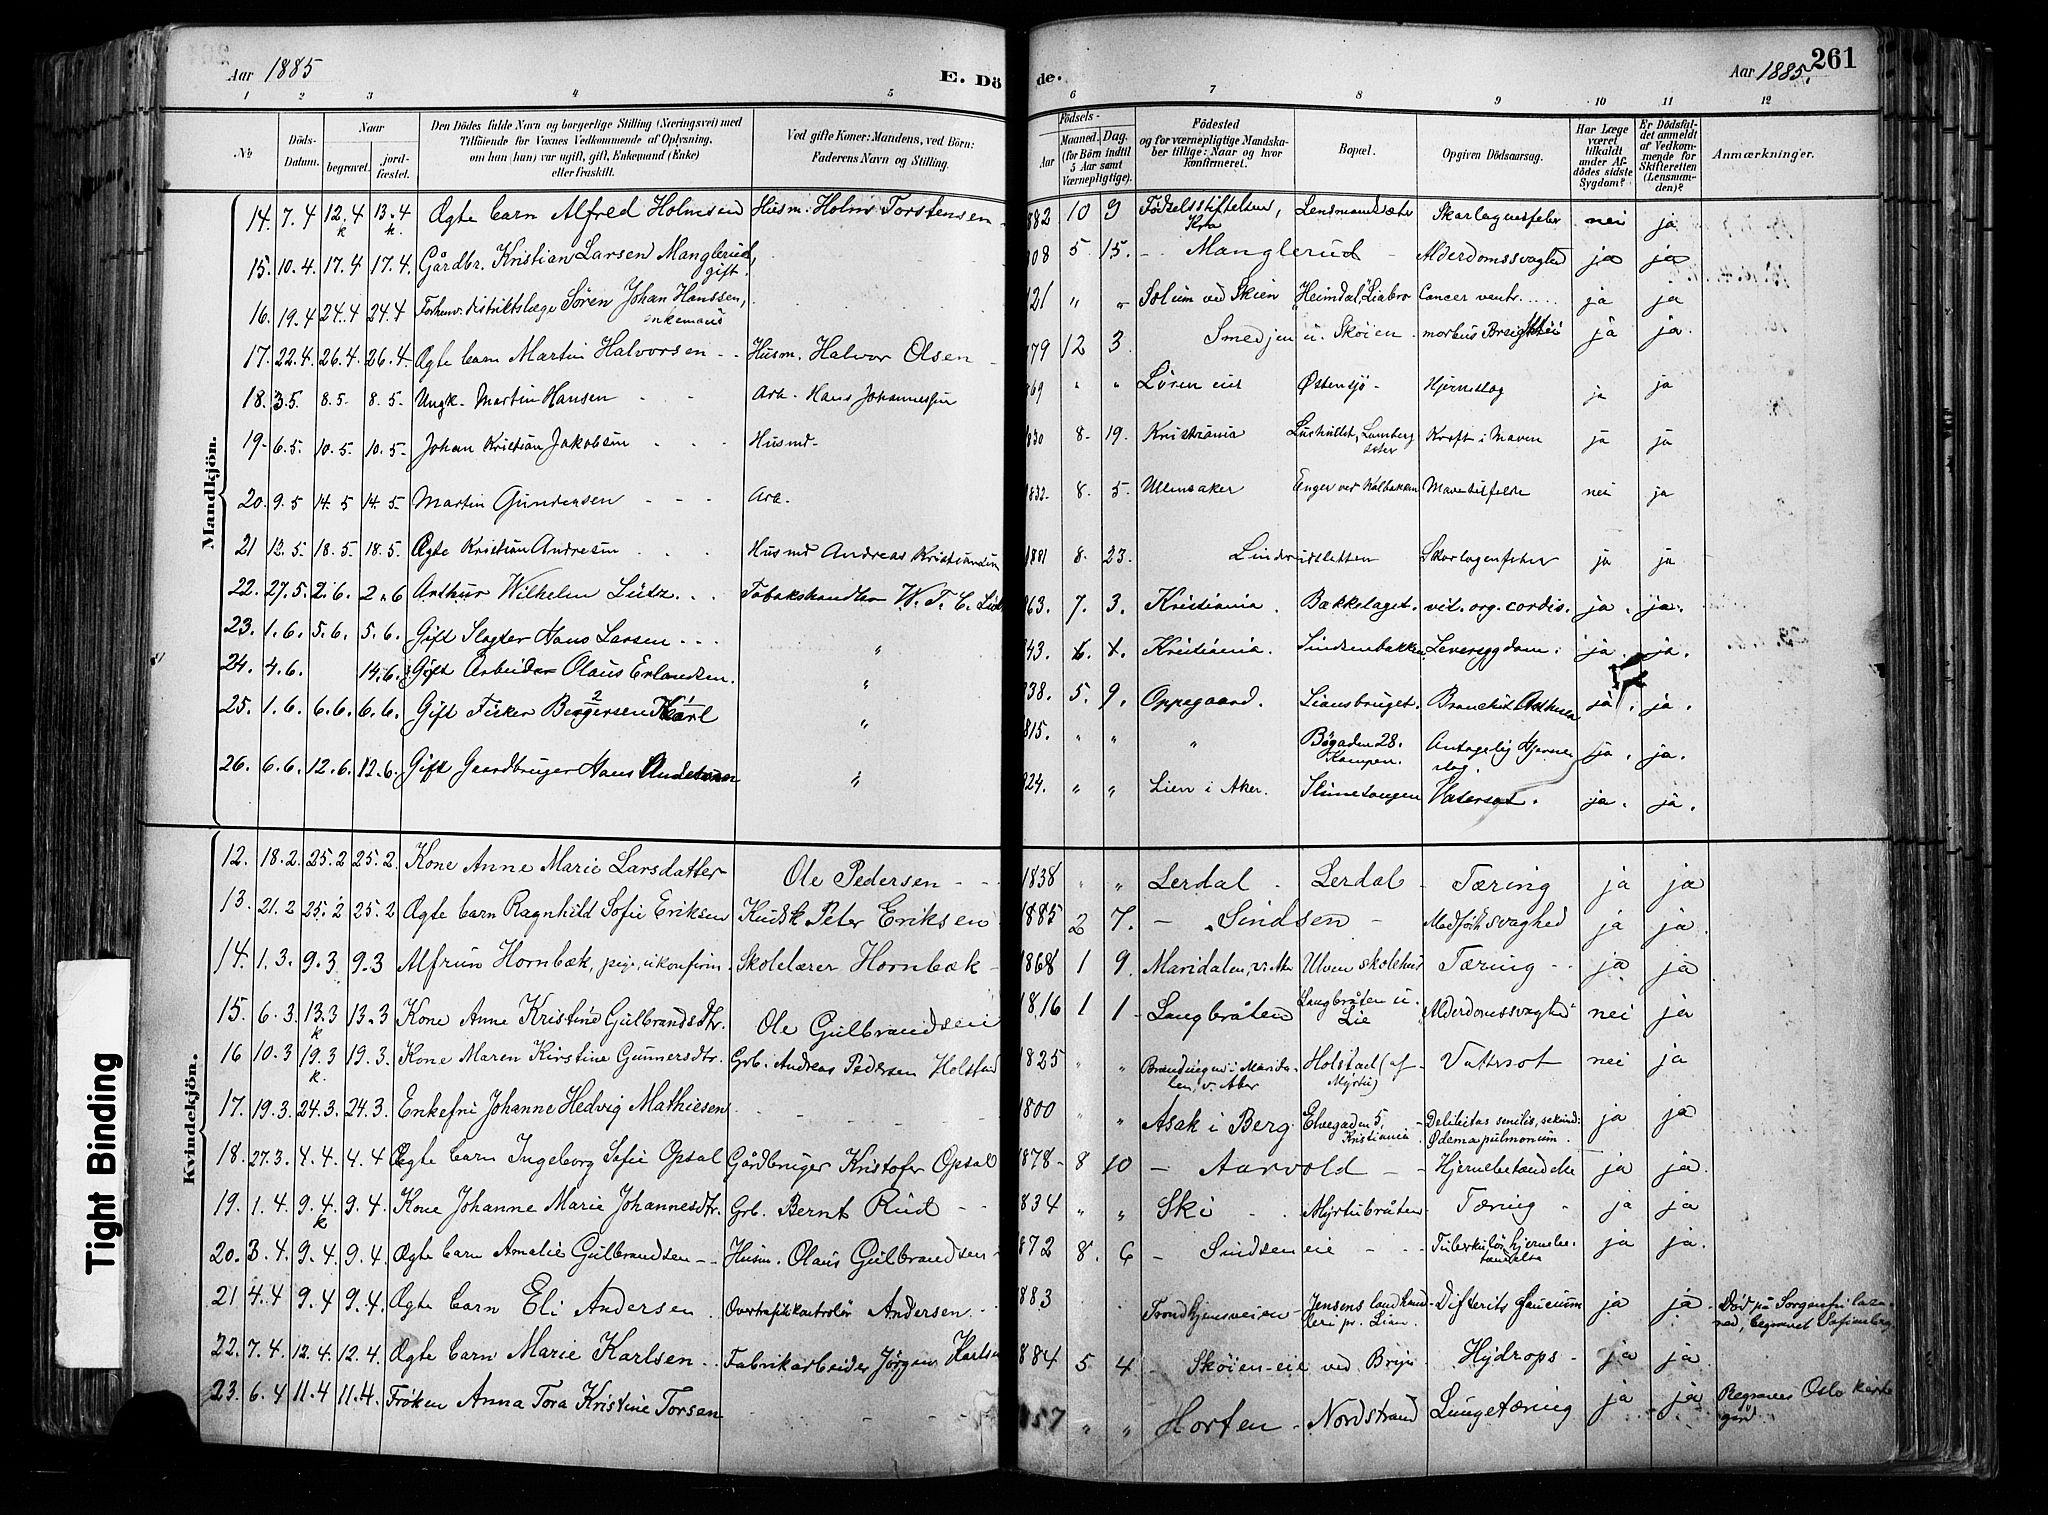 Aar 1885
E. Dö
de.
Aar 1885.
261
1 2 3 4 5 6 7 8 9 10 11 12
№
Döds-
Datum.
Naar
begravet.
jord-
fæstet.
Den Dödes fulde Navn og borgerlige Stilling (Næringsvei) med
Tilföiende for Voxnes Vedkommende af Oplysning,
om han (hun) var ugift, gift, Enkemand (Enke)
eller fraskilt.
Ved gifte Koner: Mandens, ved Börn:
Faderens Navn og Stilling.
Födsels-
Aar
Maaned. Dag.
(for Börn indtil
5 Aar samt
Værnepligtige).
Födested
og for værnepligtige Mandska-
ber tillige: Naar og hvor
konfirmeret.
Bopæl.
Opgiven Dödsaarsag.
Har Læge
været
tilkaldt
under Af-
dödes sidste
Sygdom?
Er Dödsfal-
det anmeldt
af Vedkom-
mende for
Skifteretten
(Lensman-
den)?
Anmærkninger.
Mandkjön.
14. 7.4 12.4 k 13.4 Ægte barn Alfred Holmsen Husm. Holm Torstensen 882 10 9 Fødselsstiftelsen, Kra Lensmandsæter Skarlagensfeber nei ja
15. 10.4. 17.4 17.4. Gårdbr. Kristian Larsen Manglerud, gift. 808 5 15. Manglerud Alderdomssvaghed ja ja
16. 19.4 24.4 24.4 Forhenv. distriktslæge Sören Johan Hanssen, enkemand 821 " " Solum ved Skien "Heimdal", Liabro Cancer ventr. ja ja
17. 22.4. 26.4 26.4. Ægte barn Martin Halvorsen Husm. Halvor Olsen 879 12 3. Smedjen u. Skøien morbus Brightii ja ja.
18. 3.5. 8.5. 8.5. Ungk. Martin Hansen Arb. Hans Johannessen 869 " " Løren eie Østensjø Hjerneslag ja ja
19. 6.5. 10.5. 10.5. Johan Kristian Jakobsen Husmd. 830 8. 19. Kristiania Lamberg sæter Kræft i Maven ja ja
20. 9.5 14.5 14.5. Martin Gundersen Arb. 1832. 8. 5. Ullensaker Enger ved Kalbakken Mavetilfelde nei ja
21 12.5. 18.5. 18.5. Ægte Kristian Andresen Husmd Andreas Kristiansen 1881 8. 23. Linderudsletten Skarlagenfeber ja ja
22. 27.5. 2.6. 2.6 Arthur Wilhelm Lütz. Tabakshandler W. T. C. Lütz 863. 7. 3. Kristiania. Bækkelaget. vit. org. cordis. ja. ja.
23. 1.6. 5.6. 5.6. Gift Slagter Hans Larsen " 843. Kristiania. Sindsenbakken. Leversygdom. ja. ja.
24. 4.6. 14.6. Gift Arbeider Olaus Erlandsen. " 838. 5. 9. Oppegaard. Liansbruget. Bronchit Asthma ja. ja.
25. 1.6. 6.6. 6.6. Gift Fisker Bergersen Karl " 815. " " " Bøgaden 28. Kampen. Antagelig Hjerneslag. ja. ja.
26. 6.6. 12.6. 12.6. Gift Gaardbruger Hans Andersen " 824. " " Lien i Aker. Stimetangen Vatersot. ja. ja.
Kvindekjön.
12. 18.2. 25.2 25.2. Kone Anne Marie Larsdatter Ole Pedersen 1838 " " Lerdal Lerdal Tæring ja ja
13. 21.2 25.2 25.2 Ægte barn Ragnhild Sofie Eriksen Kudsk Peter Eriksen 1885 2 7. Sindsen Medfödt svaghed ja ja.
14. 1.3. 9.3 9.3 Alfrun Hornbæk, pige, ukonfirm. Skolelærer Hornbæk 1868 1 9. Maridalen, v. Aker Ulven skolehus Tæring ja ja
15. 6.3. 13.3 k 13.3 Kone Anne Kristine Gulbrandsdtr. Ole Gulbrandsen 1816 1 1 Langbråten Langbråten u. Lie Alderdomssvaghed nei ja
16 10.3 19.3 k. 19.3. Kone Maren Kirstine Gunnersdtr. Grb. Andreas Pedersen Holstad 1825 " Maridalen, v. Aker Holstad (af Myrer) Vattersot nei ja
17. 19.3. 24.3. 24.3. Enkefru Johanne Hedvig Mathiesen 1800 " " Asak i Berg Elvegaden 5, Kristiania Debilitas senilis, sekund. Ødema pulmonum. ja ja
18. 27.3. 4.4. 4.4 Ægte barn Ingeborg Sofie Opsal Gårdbruger Kristofer Opsal 1878 8 10 Aarvold Hjernebetændelse ja ja.
19. 1.4. 9.4. k 9.4. Kone Johanne Marie Johannesdtr. Grb. Bernt Rud 834 " " Ski Myrerbråten Tæring ja ja
20. 3.4. 9.4. 9.4. Ægte barn Amalie Gulbrandsen Husm. Olaus Gulbrandsen 872 8. 6 Sindsen eie Tuberkuløs hjernebetændelse ja ja.
21 4.4 9.4 9.4. Ægte barn Eli Andersen Overtrafikkontrolør Andersen 883 Trondhjemsveien Jensens landhandleri pr. Lian. Difterits faucium ja ja Död på Sorgenfri lazaret, begravet Sofienberg
22. 7.4. 12.4. 12.4. Ægte barn Marie Karlsen Fabrikarbeider Jörgen Karlsen 884 5 4 Skøien-eie ved Bryn Hydrops ja ja
23. 6.4 11.4 11.4. Frøken Anna Tora Kristine Torsen 857 " " Horten Nordstrand Lungetæring ja ja Begraves Oslo kirkegård
Tight Binding